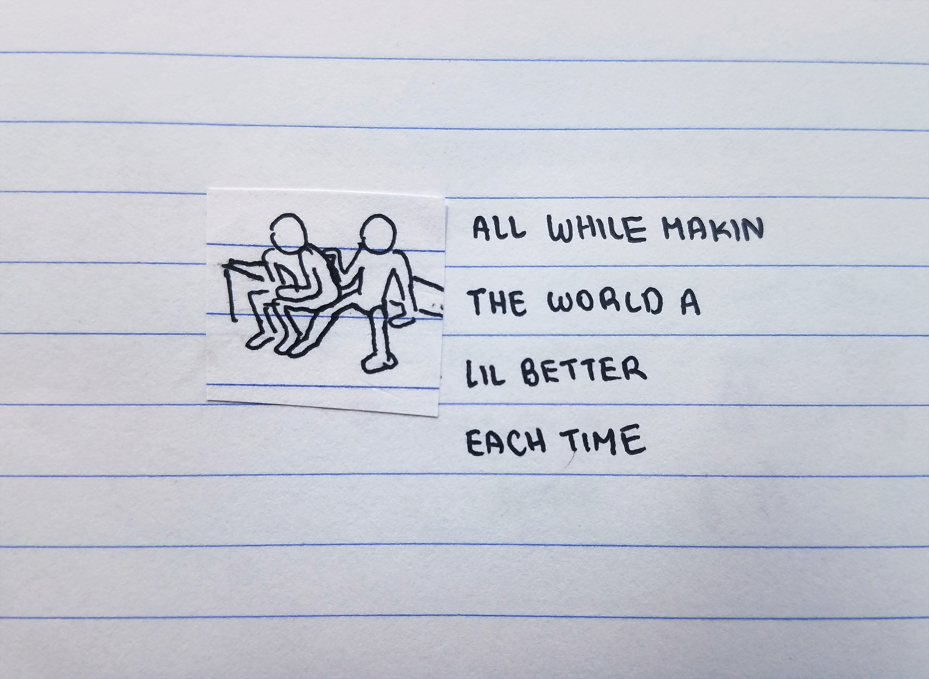 ALL WHILE MAKIN
THE WORLD A
LIL BETTER
EACH TIME